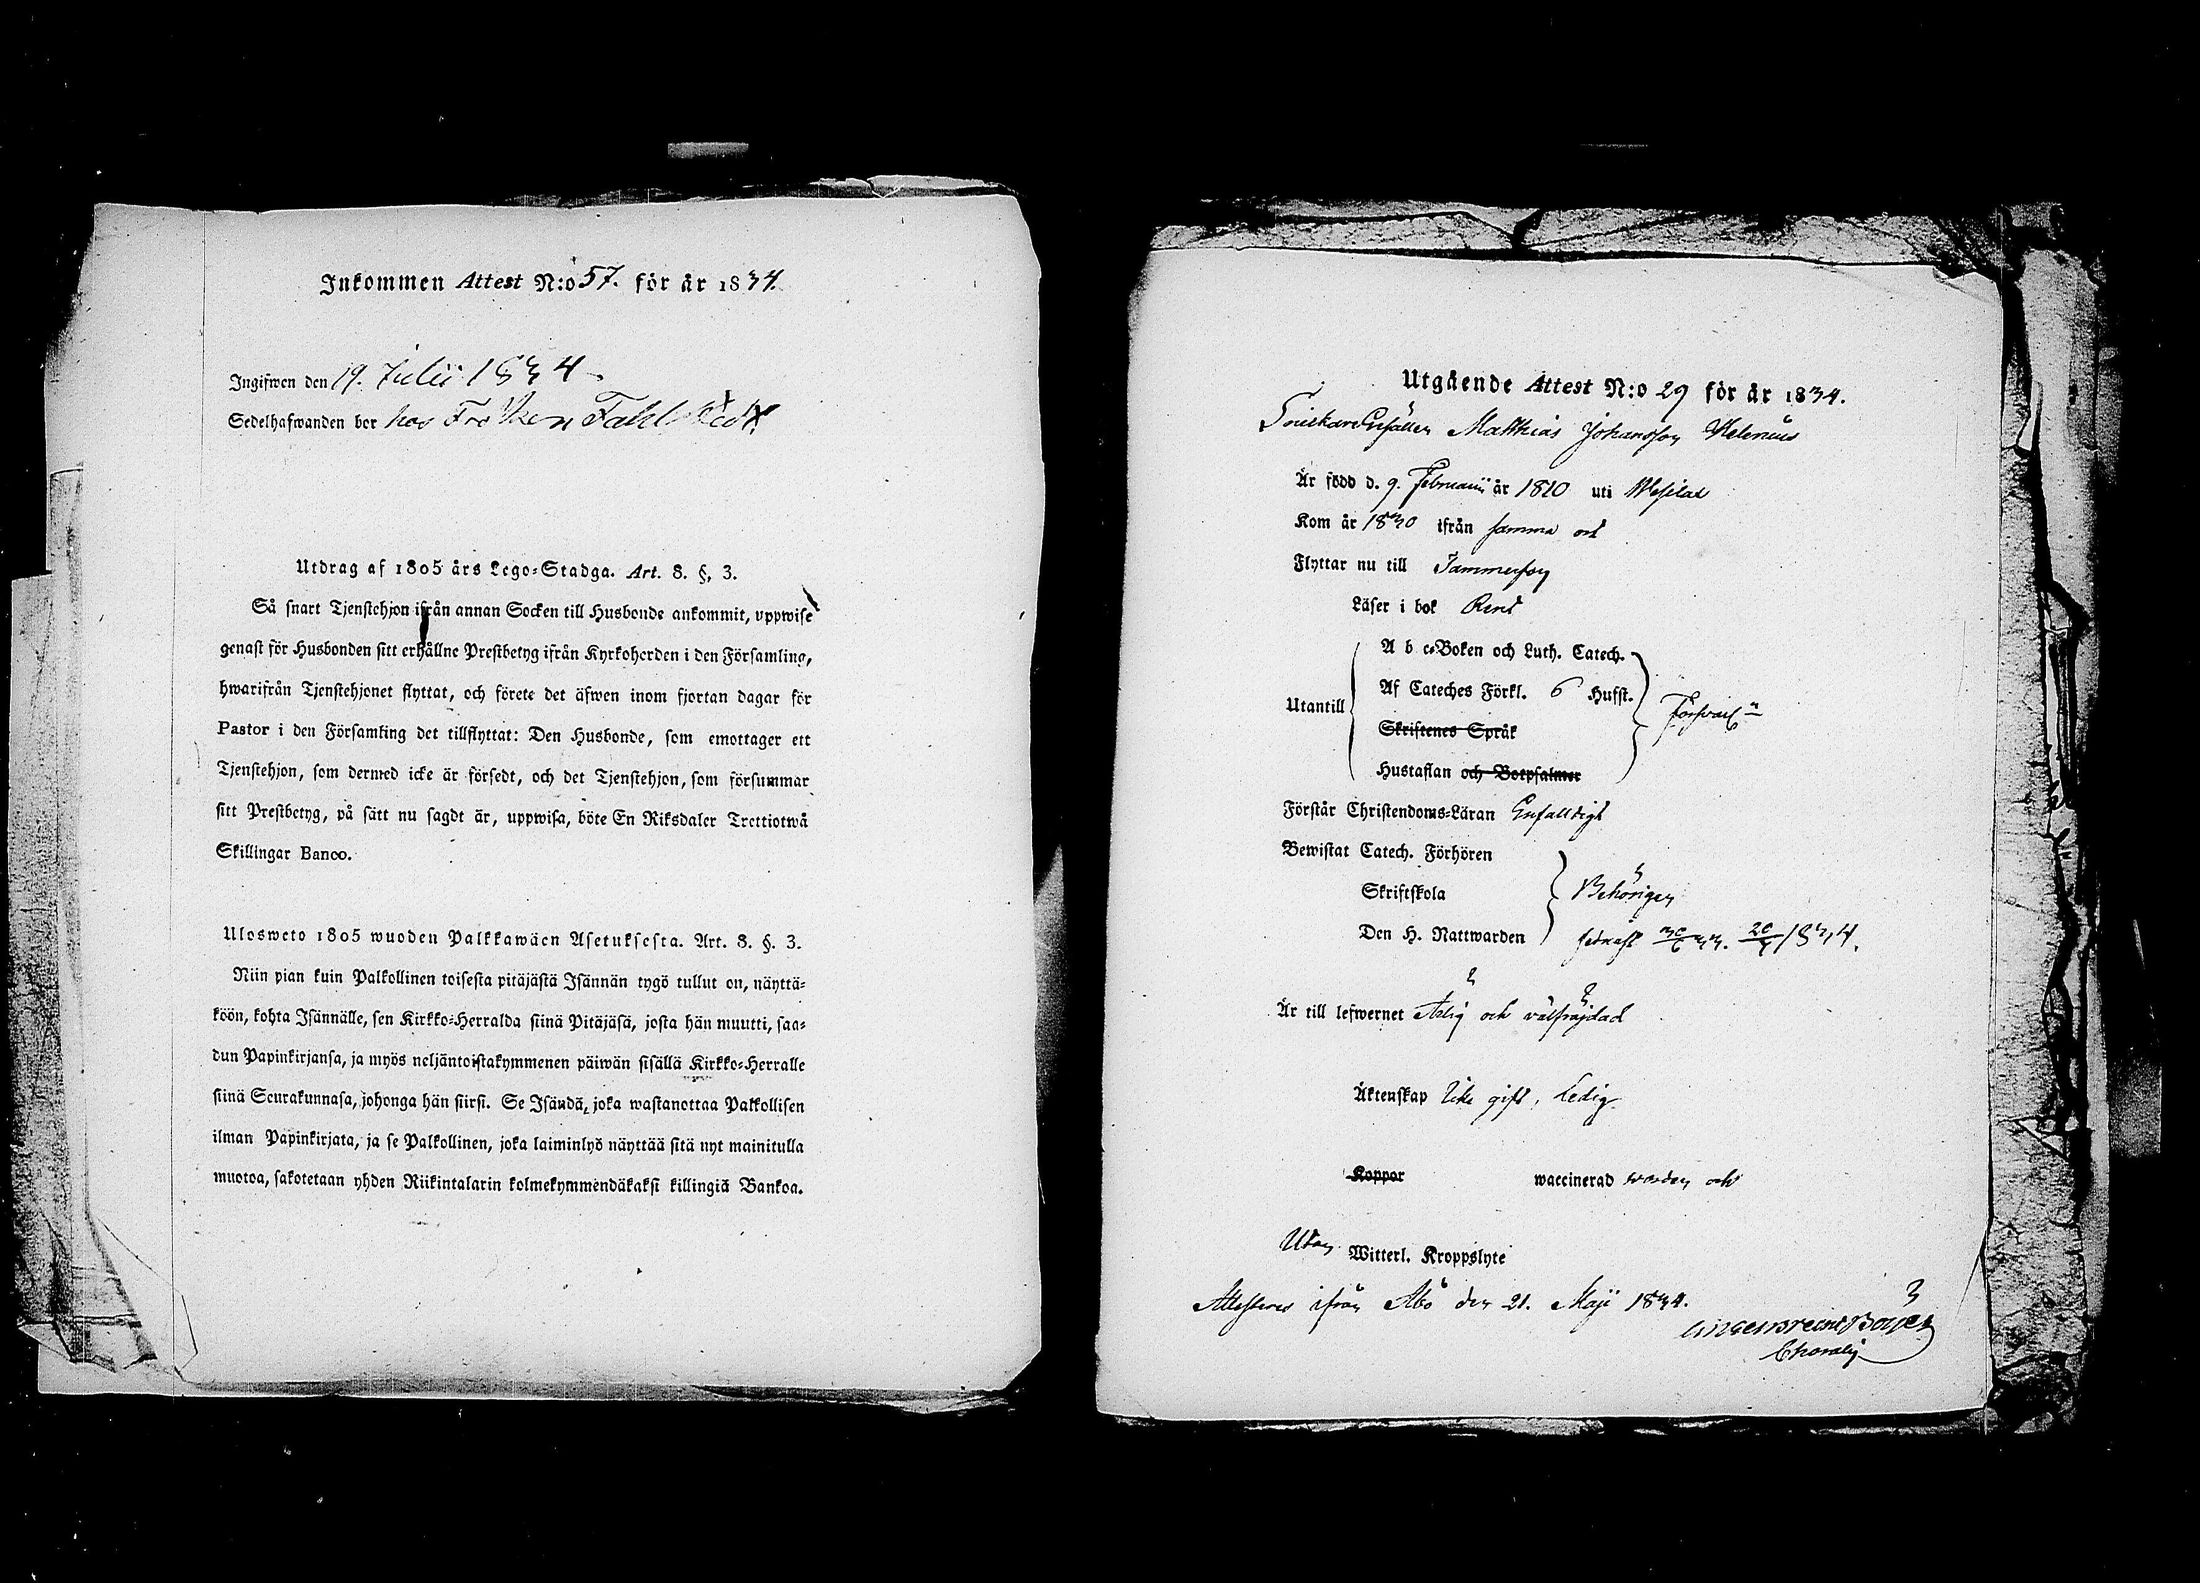 Inkommen Attest N:o 57. för år 1834.
Ingifwen den 19. Julii 1834.
Sedelhafwanden bor hos Fröken
Utdrag af 1805 års Lego-Stadga. Art. 8. §, 3.
Så snart Tjenstehjon ifrån annan Socken till Husbonde ankommit, uppwise
genast för Husbonden sitt erhållne Prestbetyg ifrån Kyrkoherden i den Församling,
hwarifrån Tjenstehjonet flyttat, och förete det äfwen inom fjortan dagar för
Pastor i den Församling det tillflyttat: Den Husbonde, som emottager ett
Tjenstehjon, som dermed icke är försedt, och det Tjenstehjon, som försummar
sitt Prestbetyg, på sätt nu sagdt är, uppwisa, böte En Riksdaler Trettiotwå
Skillingar Banco.
Ulosweto 1805 wuoden Palkkawäen Asetuksesta. Art. 8. §. 3.
Niin pian kuin Palkollinen toisesta pitäjästä Isännän tygö tullut on, näyttä-
köön, kohta Isännälle, sen Kirkko-Herralda siinä Pitäjäsä, josta hän muutti, saa-
dun Papinkirjansa, ja myös neljäntoistakymmenen päiwän sisällä Kirkko-Herralle
siinä Seurakunnasa, johonga hän siirsi. Se Isändä, joka wastanottaa Palkollisen
ilman Papinkirjata, ja se Palkollinen, joka laiminlyö näyttää sitä nyt mainitulla
muotoa, sakotetaan yhden Riikintalarin kolmekymmendäkaksi killingiä Bankoa.
Utgående Attest N:o 29 för år 1834.
Snickare Gesällen Matthias Johansson Helenius
Är född d. 9. Februarii år 1810 uti Wesilax
Kom år 1830 ifrån samma ort
Flyttar nu till Tammerfors
Läser i bok Rent
A b c-Boken och Luth. Catech.
Af Cateches Förkl. 6 Hufst.
Utantill Försvarl:n
Skriftenes Språk
Hustaflan och Botpsalmer
Förstår Christendoms-Läran Enfalldigt
Bewistat Catech. Förhören
Skriftskola Behörigen
Den H. Nattwarden sednast 1834.
Är till lefwernet ärlig och välfräjdad
Äktenskap Icke gift, Ledig.
Koppor waccinerad worden och
Utan Witterl. Kroppslyte
Attesteras ifrån Åbo den 21. Maji 1834.